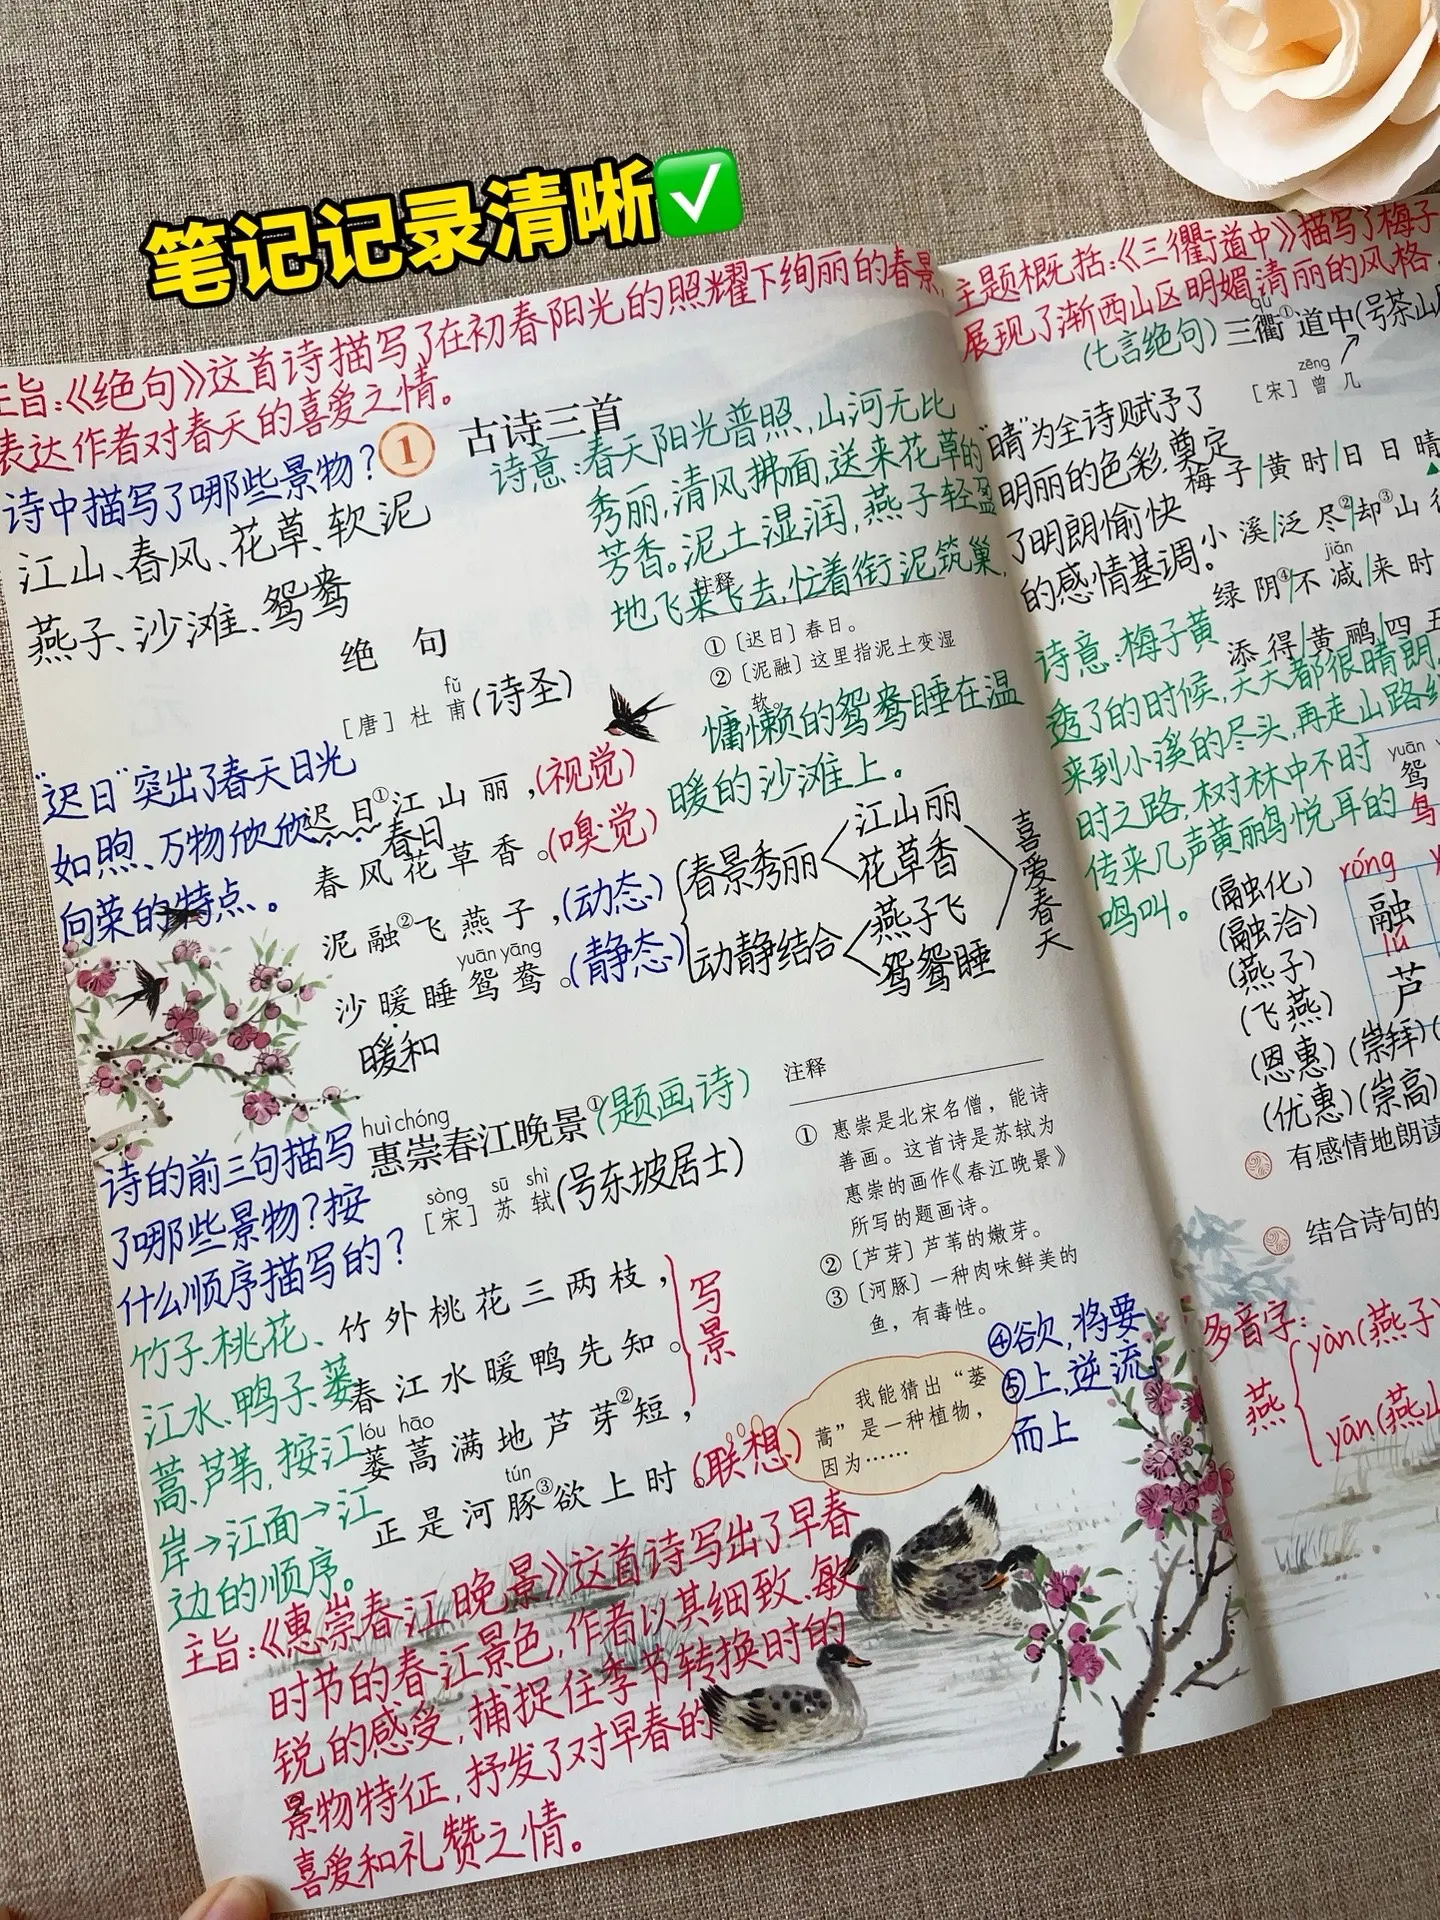 笔记记录清晰✅
主旨:《绝句》这首诗描写了在初春阳光的照耀下绚丽的春景,
表达作者对春天的喜爱之情。
1 古诗三首
诗中描写了哪些景物?
江山、春风、花草、软泥
燕子、沙滩、鸳鸯
诗意:春天阳光普照,山河无比
秀丽,清风拂面,送来花草的
芳香。泥土湿润,燕子轻盈
地飞来飞去,忙着衔泥筑巢,
慵懒的鸳鸯睡在温
暖的沙滩上。
绝句
fǔ
[唐]杜甫(诗圣)
注释
①〔迟日〕春日。
②〔泥融〕这里指泥土变湿
软。
“迟日”突出了春天日光
如煦、万物欣欣
向荣的特点。
迟日①江山丽,(视觉)
春日
春风花草香。(嗅觉)
泥融②飞燕子,(动态)
yuān yāng
沙暖睡鸳鸯。(静态)
暖和
春景秀丽
江山丽
花草香
动静结合
燕子飞
鸳鸯睡
喜爱春天
huì chóng
惠崇春江晚景①(题画诗)
sòng sū shì
[宋]苏轼(号东坡居士)
诗的前三句描写
了哪些景物?按
什么顺序描写的?
竹子、桃花、
江水、鸭子、蒌
蒿、芦苇,按江
岸→江面→江
边的顺序。
竹外桃花三两枝,
春江水暖鸭先知。
写景
lóu hāo
蒌蒿满地芦芽②短,
tún
正是河豚③欲上时。(联想)
注释
① 惠崇是北宋名僧,能诗
善画。这首诗是苏轼为
惠崇的画作《春江晚景》
所写的题画诗。
②〔芦芽〕芦苇的嫩芽。
③〔河豚〕一种肉味鲜美的
鱼,有毒性。
④欲,将要
⑤上,逆流
而上
我能猜出“蒌
蒿”是一种植物,
因为……
主旨:《惠崇春江晚景》这首诗写出了早春
时节的春江景色,作者以其细致、敏
锐的感受,捕捉住季节转换时的
景物特征,抒发了对早春的
喜爱和礼赞之情。
主题概括:《三衢道中》描写了梅子
展现了浙西山区明媚清丽的风格
qú
(七言绝句)三衢①道中(号茶山
zēng
[宋]曾几
“晴”为全诗赋予了
明丽的色彩,奠定
了明朗愉快
的感情基调。
梅子|黄时|日日晴
小溪|泛尽②|却③山
jiǎn
绿阴④|不减|来时
添得|黄鹂|四
诗意:梅子黄
透了的时候,天天都很晴朗,
来到小溪的尽头,再走山路
时之路,树林中不时
传来几声黄鹂鸟悦耳的
鸣叫。
yuān
鸳
鸟
róng
融
lú
芦
(融化)
(融洽)
(燕子)
(飞燕)
(恩惠)(崇拜)
(优惠)(崇高)
有感情地朗读
结合诗句的
多音字:
燕
yàn(燕子)
yān(燕山